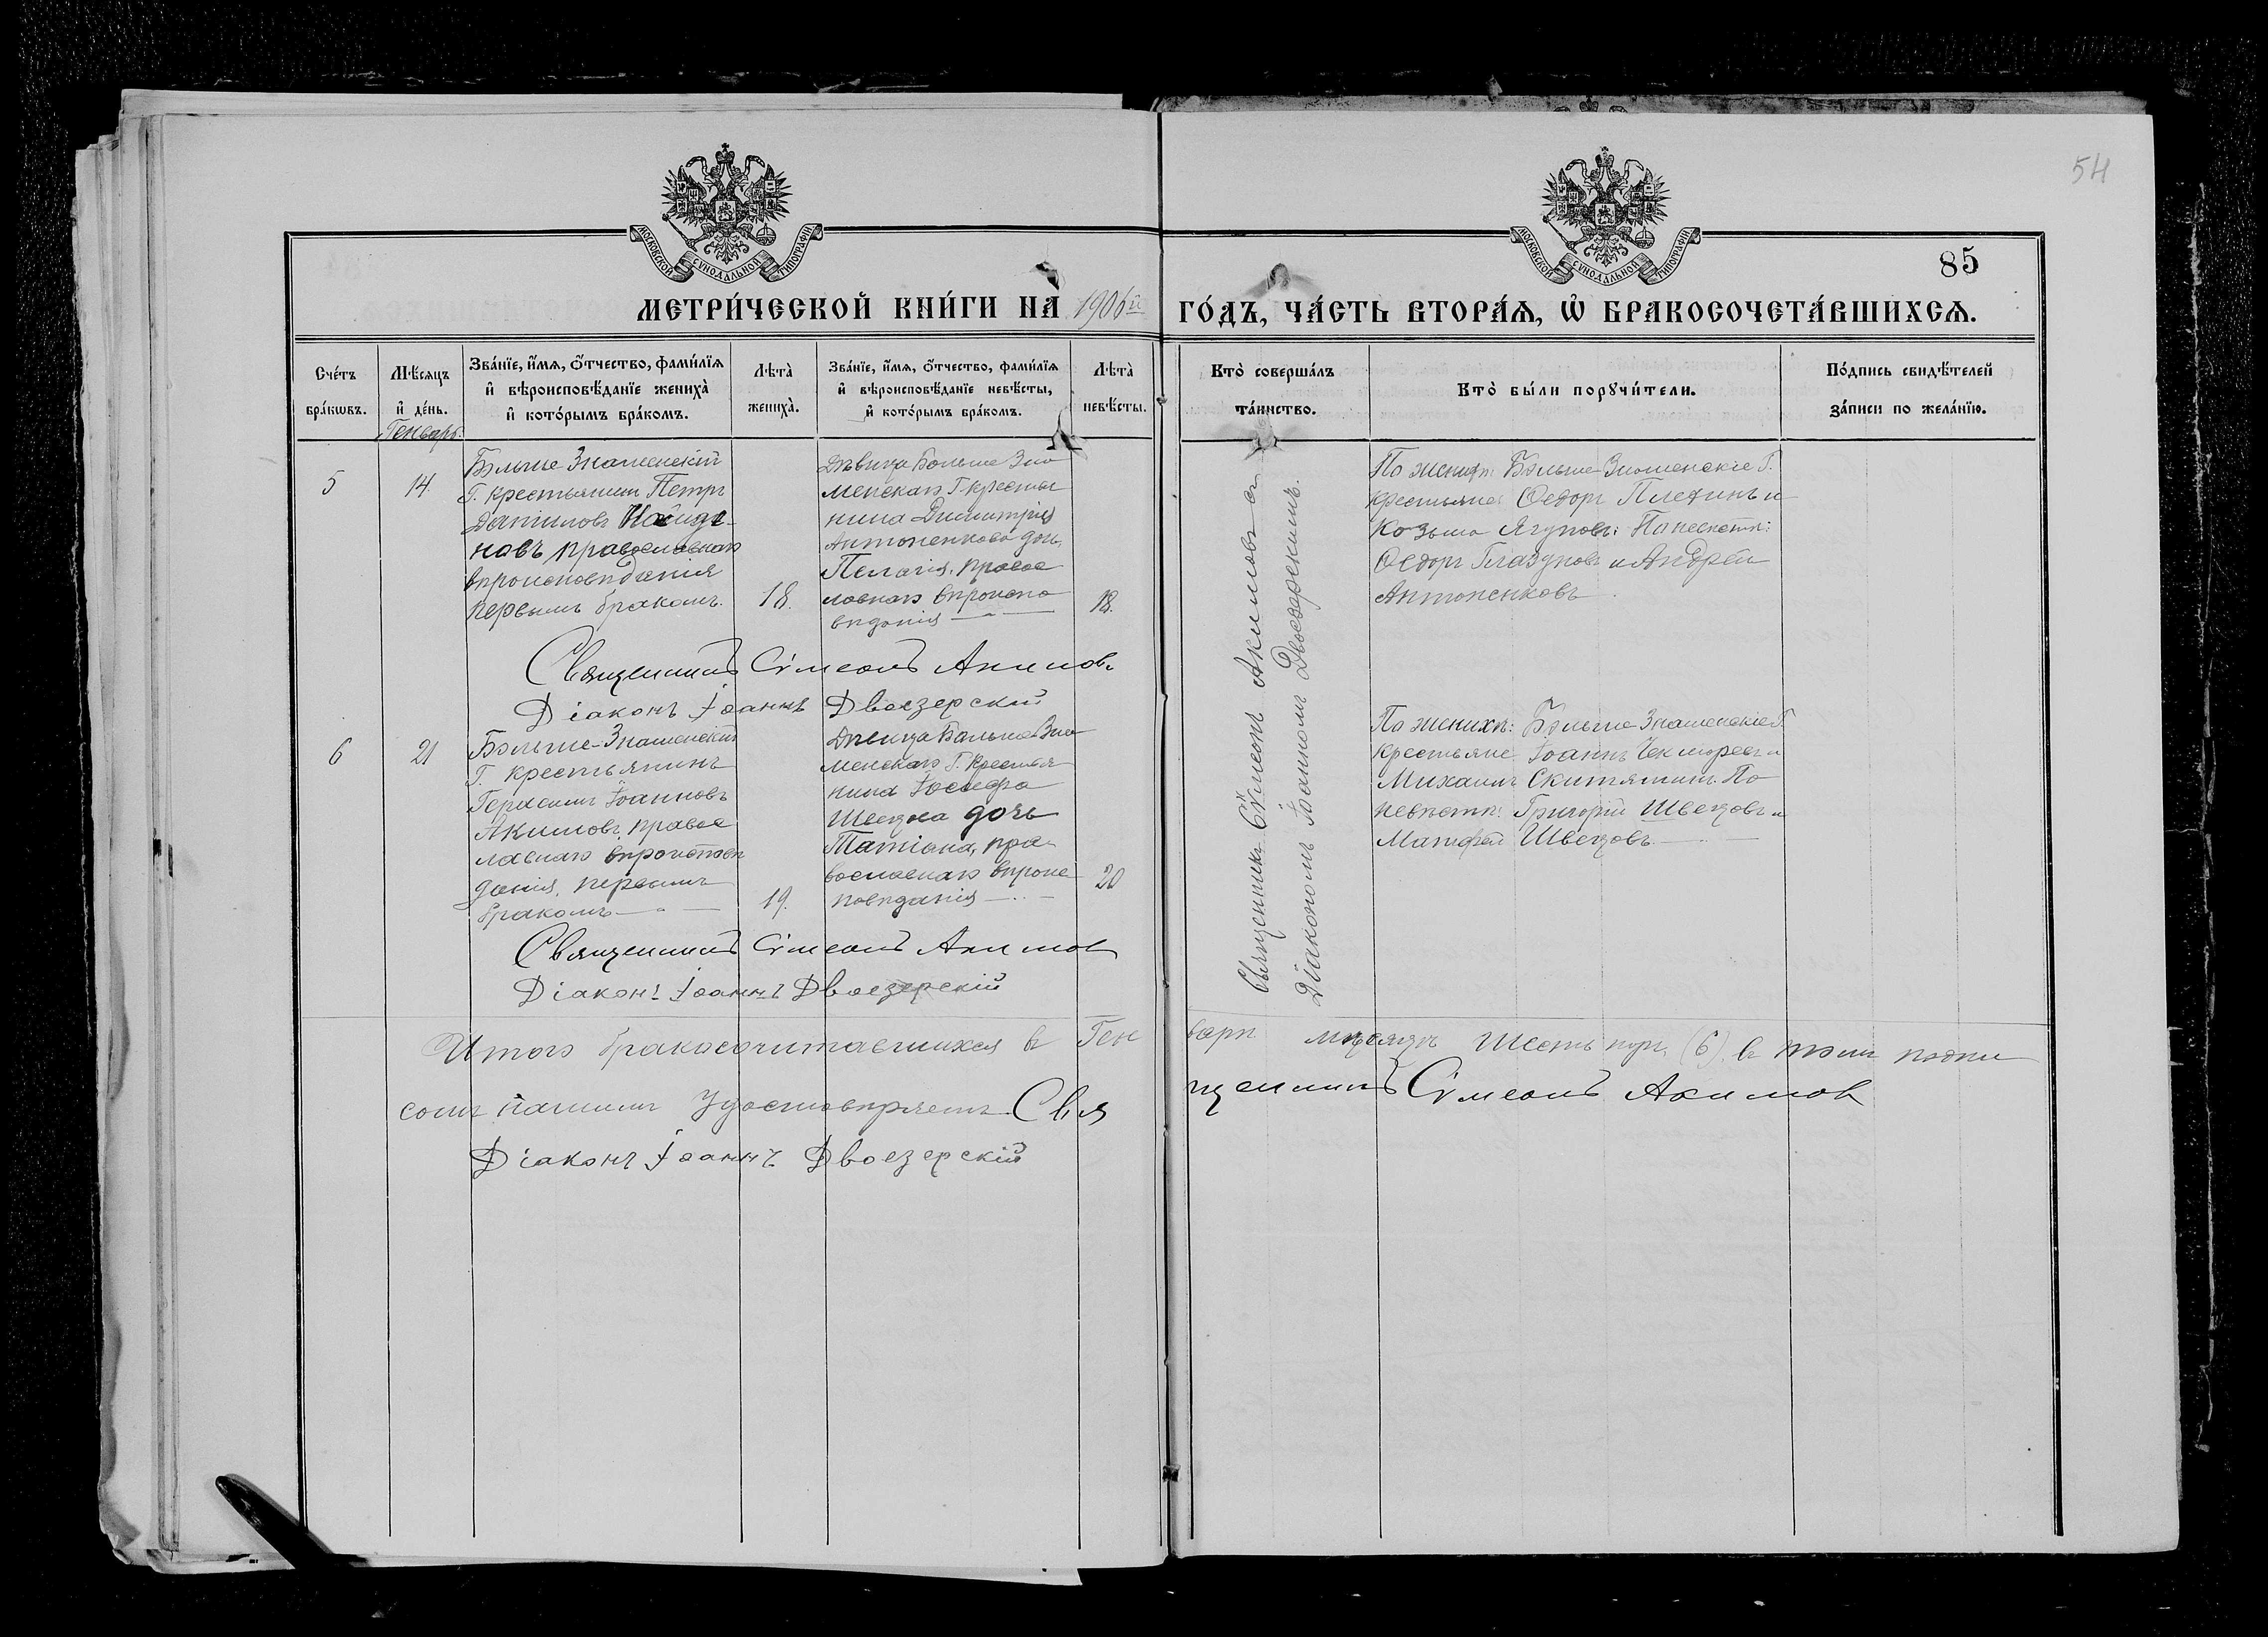 54
85
МОСКОВСКОЙ СѴНОДАЛЬНОЙ ТИПОГРАФІИ
МОСКОВСКОЙ СѴНОДАЛЬНОЙ ТИПОГРАФІИ
МЕТРИ́ЧЕСКОЙ КНИ́ГИ НА̀ 1906й ГО́ДЪ, ЧА́СТЬ ВТОРА́Ѧ, Ѽ БРАКОСОЧЕТА́ВШИХСѦ.
Сче́тъ бра́кѡвъ.
Мѣ́сяцъ и҆ де́нь.
Зва́нїе, и҆́мѧ, ѻ҆́тчество, фами́лїѧ и҆ вѣроисповѣ́данїе жениха̀ и҆ кото́рымъ бра́комъ.
Лѣта̀ жениха̀.
Зва́нїе, и҆́мѧ, ѻ҆́тчество, фами́лїѧ и҆ вѣроисповѣ́данїе невѣ́сты, и҆ кото́рымъ бра́комъ.
Лѣта̀ невѣ́сты.
Кто̀ соверша́лъ та́инство.
Кто̀ бы́ли порꙋчи́тели.
По́дпись свидѣ́телей за́писи по жела́нїю.
Генварь.
5
14.
Больше Знаменскій
Г. крестьянинъ Петръ
Даніиловъ
новъ православнаго
вѣроисповѣданія
первымъ бракомъ.
18.
Дѣвица Больше Зна
менскаго Г. крестья
нина Димитрія
Антоненкова дочь
Пелагія, правос
лавнаго вѣроиспо
вѣданія
18.
Священникъ Сѷмеонъ Акимовъ съ
Діакономъ Іоанномъ Двоезерскимъ.
По женихѣ: Больше Знаменскіе Г.
крестьяне: Ѳедоръ Плехинъ и
Козьма Ягуповъ: По невѣстѣ:
Ѳедоръ Глазуновъ и Андрей
Антоненковъ.
Священникъ Сѵмеонъ Акимовъ
Діаконъ Іоаннъ Двоезерскій
6
21
Больше-Знаменскій
Г. крестьянинъ
Герасимъ Іоанновъ
Акимовъ, правос
лавнаго вѣроисповѣ
данія, первымъ
бракомъ
19.
Дѣвица Больше Зна
менскаго Г. крестья
нина Іосифа
Швецова дочь
Татіана, пра
вославнаго вѣроис
повѣданія
20
По женихѣ: Больше Знаменскіе Г.
крестьяне Іоаннъ и
Михаилъ Скитянинъ. По
невѣстѣ: Григорій Швецовъ и
Матфей Швецовъ.
Священникъ Сѵмеонъ Акимов
Діаконъ Іоаннъ Двоезерскій
Итого бракосочитавшихся въ Генварѣ мѣсяцѣ шесть паръ (6) въ томъ подпи
сомъ нашимъ удостовѣряемъ. Священникъ Сѵмеонъ Акимов
Діаконъ Іоаннъ Двоезерскій